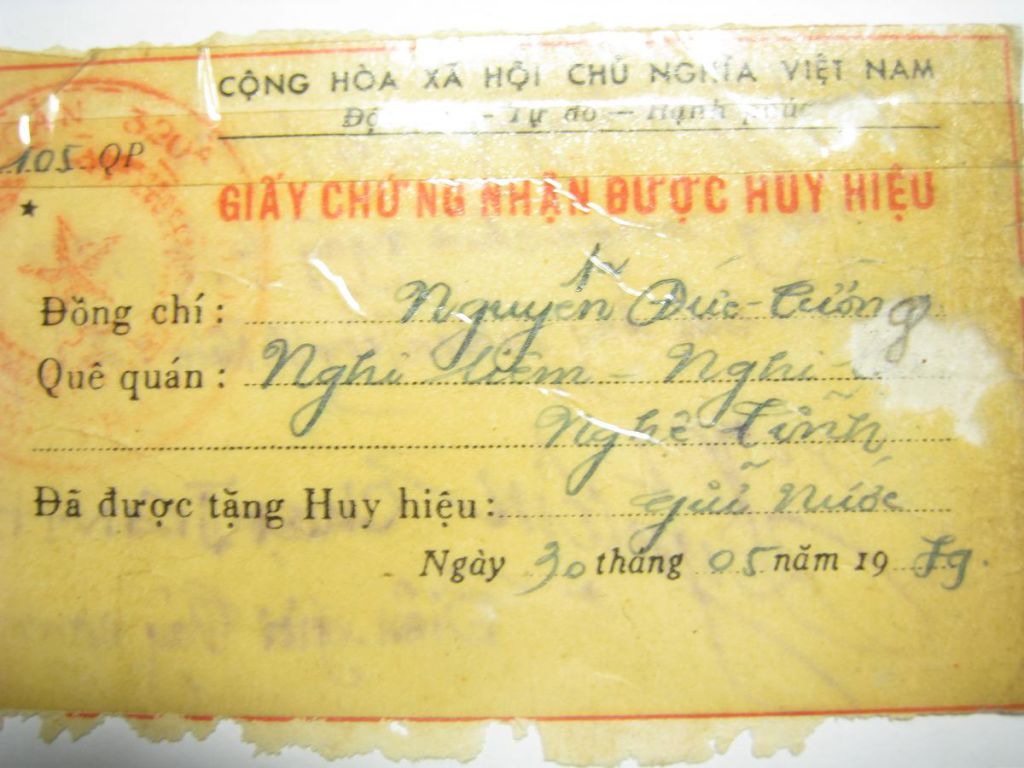 CỘNG HÒA XÃ HỘI CHỦ NGHĨA VIỆT NAM
- Tự do - Hạnh phúc
105 QP
320A
GIẤY CHỨNG NHẬN ĐƯỢC HUY HIỆU
Đồng chí: Nguyễn Đức-Cường
Quê quán: Nghi - Nghi -
Nghệ Tĩnh
Đã được tặng Huy hiệu: Nước
Ngày 30 tháng 05 năm 19 79.